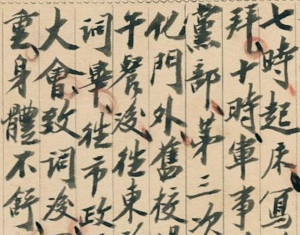 七時起床寫
拜、十時軍事
黨部、第三次
化門外舊校場
午餐後往東
詞畢、往市政
大會致詞後
重身體不舒